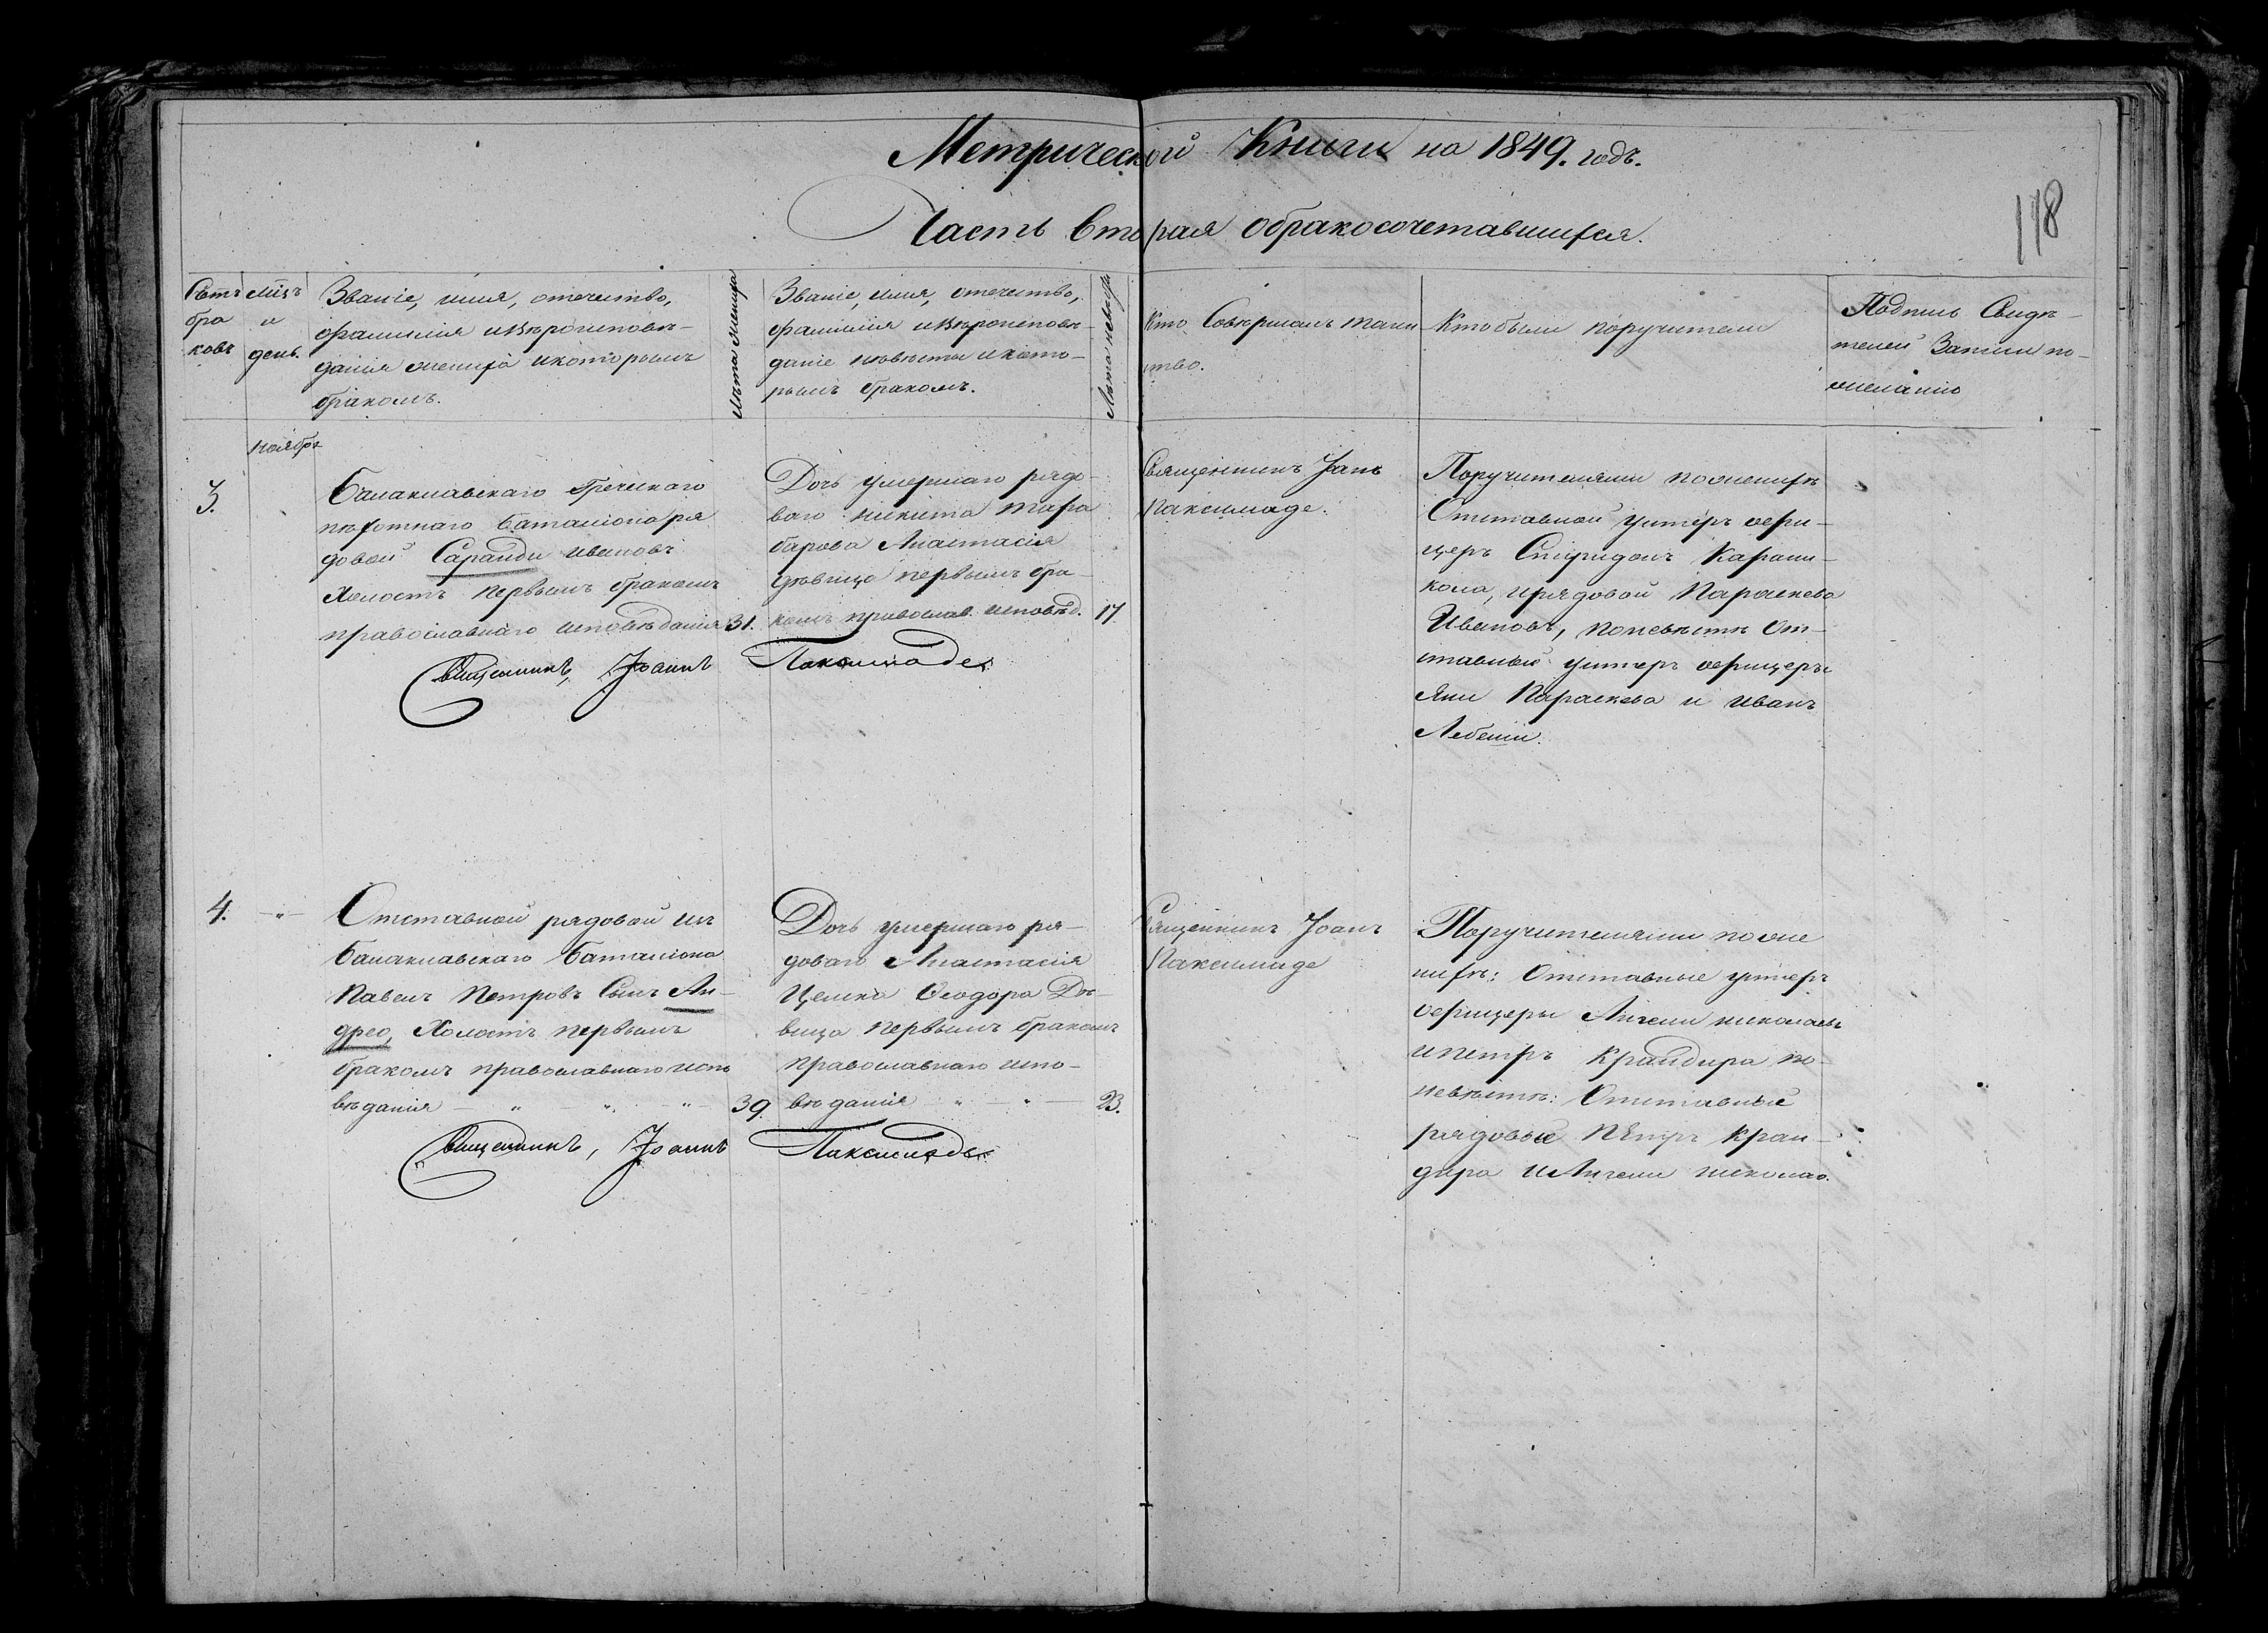 Метрической Книги на 1849. годъ.
Часть вторая обракосочетавшихся.
118
Счтъ браковъ
Мѣц. и день.
Званіе, имя, отечество,
фамилія и вѣроисповѣ-
данія жениха и которымъ
бракомъ.
Лѣта жениха
Званіе, имя, отечество,
фамилія и вѣроисповѣ-
даніе невѣсты и кото-
рымъ бракомъ.
Лѣта невѣсты
Кто совершалъ таин-
ство.
Кто были поручители
Подпись Свидѣ-
телей Записи по
желанію
Ноябрь
3.
Балаклавскаго Греческаго
пѣхотнаго баталіона ря
довой Саранди Ивановъ
Холостъ первымъ бракомъ
православнаго исповѣданія 31.
Дочь умершаго рядо-
ваго Никита Тара
барова Анастасія
дѣвица первымъ бра-
комъ православ. исповѣд. 17
Священникъ Іоанъ
Паксимаде.
Поручителями по женихѣ
Отставной унтеръ офи-
церъ Спиридонъ Карани-
кола, и рядовой Параскева
Ивановъ, по невѣстѣ От-
ставный унтеръ офицеръ
Яни Параскева и Иванъ
Лебеши.
Священникъ, Іоаннъ Паксимаде
4. -"-
Отставной рядовой изъ
балаклавскаго баталіона
Павелъ Петровъ Сынъ Ан-
дрео, Холостъ первымъ
бракомъ православнаго испо
вѣданія - " - " - " - 39.
Дочь умершаго ря-
доваго Анастасія
Целико Ѳеодора Дѣ-
вица первымъ бракомъ
православнаго испо-
вѣданія - " - " - 23.
Священникъ Іоанъ
Паксимаде
Поручителями по же
нихѣ: Отставные унтеръ
офицеры Ангели николаевъ
и петръ Крандира по
невѣстѣ: Отставные
рядовые Петръ Кран-
дира и Ангели николао.
Священникъ, Іоаннъ Паксимаде